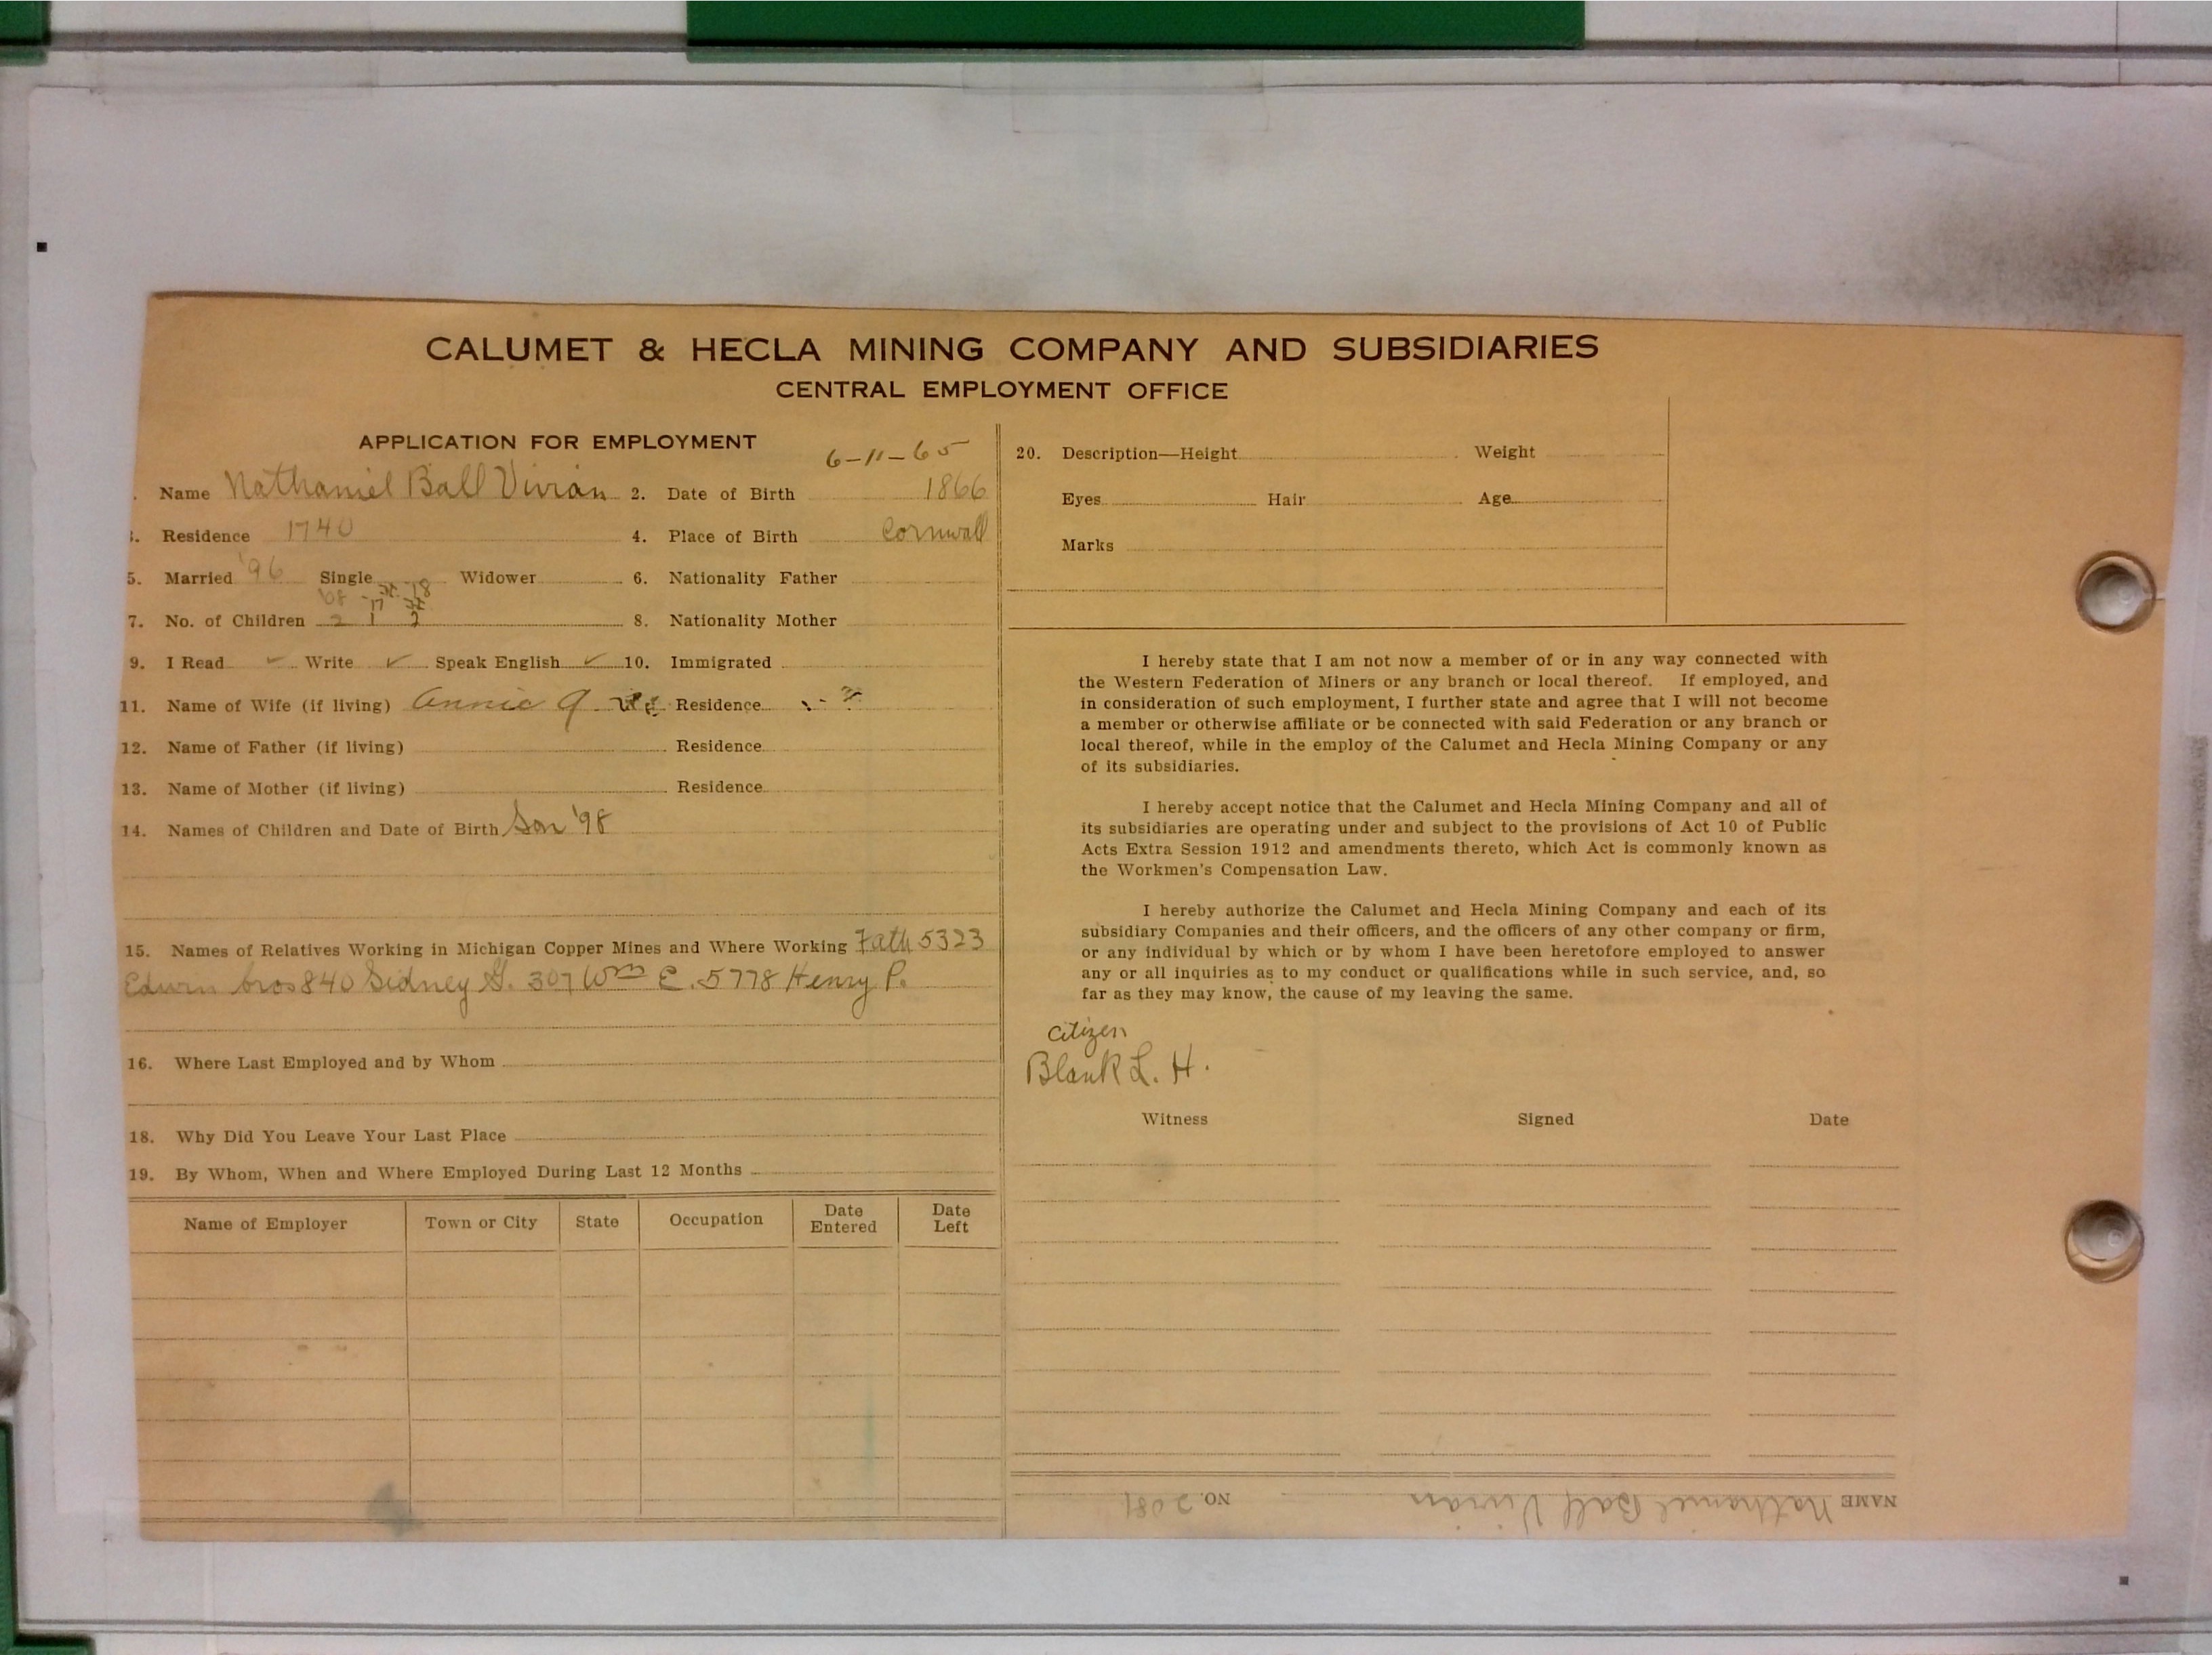 CALUMET & HECLA MINING COMPANY AND SUBSIDIARIES
CENTRAL EMPLOYMENT OFFICE
APPLICATION FOR EMPLOYMENT
6-11-65
. Name Nathaniel Ball Vivian 2. Date of Birth 1866
3. Residence 1740 4. Place of Birth Cornwall
5. Married '96 Single Widower 6. Nationality Father
'08 17 18
7. No. of Children 2 1 2 8. Nationality Mother
9. I Read ✓ Write ✓ Speak English ✓ 10. Immigrated
11. Name of Wife (if living) Annie Residence
12. Name of Father (if living) Residence
13. Name of Mother (if living) Residence
14. Names of Children and Date of Birth Son '98
15. Names of Relatives Working in Michigan Copper Mines and Where Working Fath 5323
Edwin bros 840 Sidney G. 307 Wm E. 5778 Henry P.
16. Where Last Employed and by Whom
18. Why Did You Leave Your Last Place
19. By Whom, When and Where Employed During Last 12 Months
Name of Employer Town or City State Occupation Date Entered Date Left
20. Description—Height Weight
Eyes Hair Age
Marks
I hereby state that I am not now a member of or in any way connected with
the Western Federation of Miners or any branch or local thereof. If employed, and
in consideration of such employment, I further state and agree that I will not become
a member or otherwise affiliate or be connected with said Federation or any branch or
local thereof, while in the employ of the Calumet and Hecla Mining Company or any
of its subsidiaries.
I hereby accept notice that the Calumet and Hecla Mining Company and all of
its subsidiaries are operating under and subject to the provisions of Act 10 of Public
Acts Extra Session 1912 and amendments thereto, which Act is commonly known as
the Workmen's Compensation Law.
I hereby authorize the Calumet and Hecla Mining Company and each of its
subsidiary Companies and their officers, and the officers of any other company or firm,
or any individual by which or by whom I have been heretofore employed to answer
any or all inquiries as to my conduct or qualifications while in such service, and, so
far as they may know, the cause of my leaving the same.
Citizen
Blank L. H.
Witness Signed Date
NAME Nathaniel Ball Vivian NO. 2081